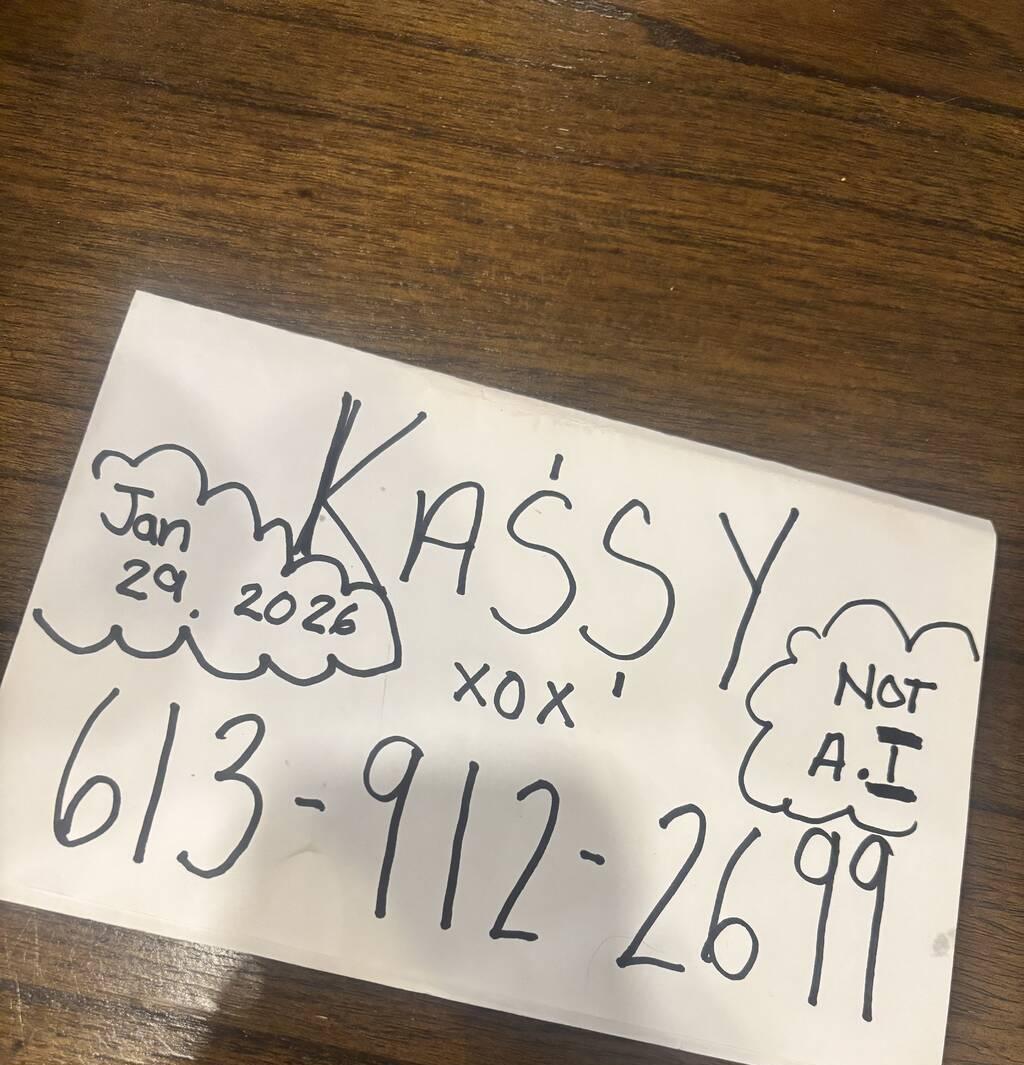 KASSY
Jan
29. 2026
xox
NOT
A.I
613-912-2699